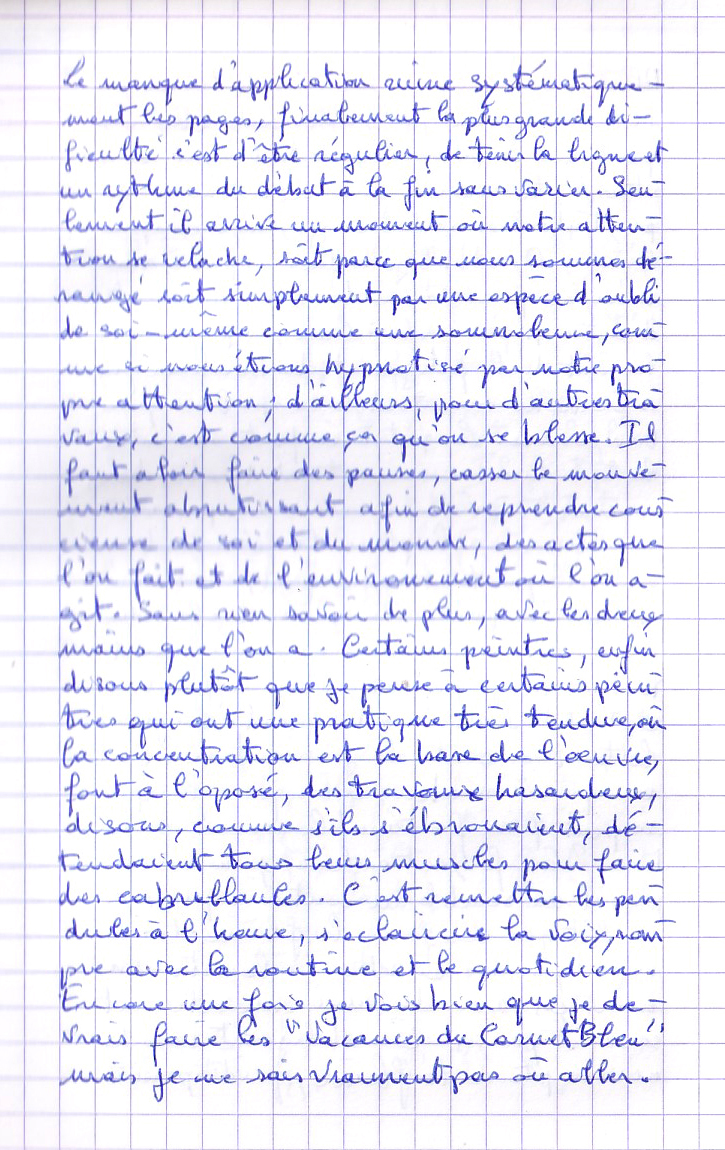 Le manque d'application ruine systématique-
ment les pages, finalement la plus grande di-
ficulté c'est d'être régulier, de tenir la ligne et
un rythme du début à la fin sans varier. Seu-
lement il arrive un moment où notre atten-
tion se relache, soit parce que nous sommes dé-
rangé soit simplement par une espèce d'oubli
de soi-même comme une somnolence, com
me si nous étions hypnotisé par notre pro
pre attention ; d'ailleurs, pour d'autres tra
vaux, c'est comme ça qu'on se blesse. Il
faut alors faire des pauses, casser le mouve-
ment abrutissant afin de reprendre cons
cience de soi et du monde, des actes que
l'on fait et de l'environnement où l'on a-
git. Sans rien savoir de plus, avec les deux
mains que l'on a. Certains peintres, enfin
disons plutôt que je pense à certains pein
tres qui ont une pratique très tendue, où
la concentration est la base de l'oeuvre,
font à l'oposé, des travaux hasardeux,
disons, comme s'ils s'ébrouaient, dé-
tendaient tous leurs muscles pour faire
des cabrillaules. C'est remettre les pen
dules à l'heure, s'eclaircir la voix, rom
pre avec la routine et le quotidien.
Encore une fois je vois bien que je de-
vrais faire les "Vacances du Carnet Bleu"
mais je ne sais vraiment pas où aller.